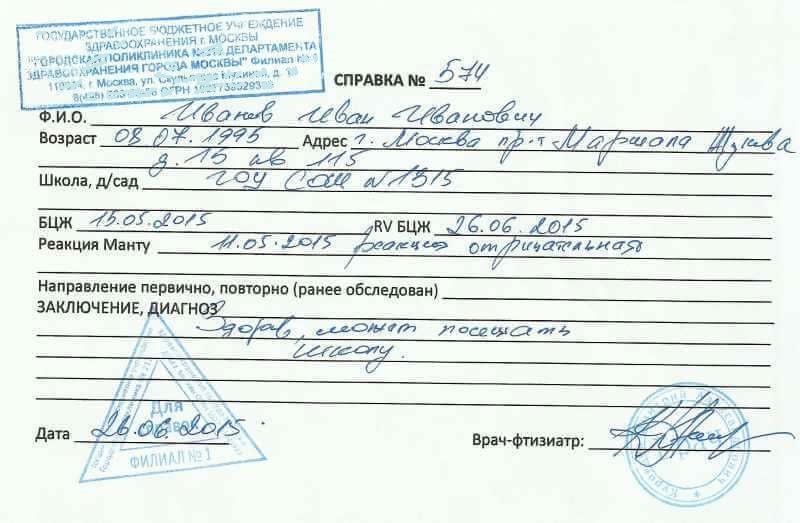 ГОСУДАРСТВЕННОЕ БЮДЖЕТНОЕ УЧРЕЖДЕНИЕ
ЗДРАВООХРАНЕНИЯ г. МОСКВЫ
"ГОРОДСКАЯ ПОЛИКЛИНИКА ДЕПАРТАМЕНТА
ЗДРАВООХРАНЕНИЯ ГОРОДА МОСКВЫ" Филиал №
г. Москва, ул. д.
ОГРН
СПРАВКА № 574
Ф.И.О. Иванов Иван Иванович
Возраст 08.07.1995 Адрес г. Москва пр-т Маршала Жукова
д. 15 кв 115
Школа, д/сад ГОУ СОШ N1315
БЦЖ 15.05.2015 RV БЦЖ 26.06.2015
Реакция Манту 11.05.2015 реакция отрицательная
Направление первично, повторно (ранее обследован)
ЗАКЛЮЧЕНИЕ, ДИАГНОЗ
Здоров, может посещать
школу.
Для
Дата 26.06.2015
ФИЛИАЛ № 1
Врач-фтизиатр: